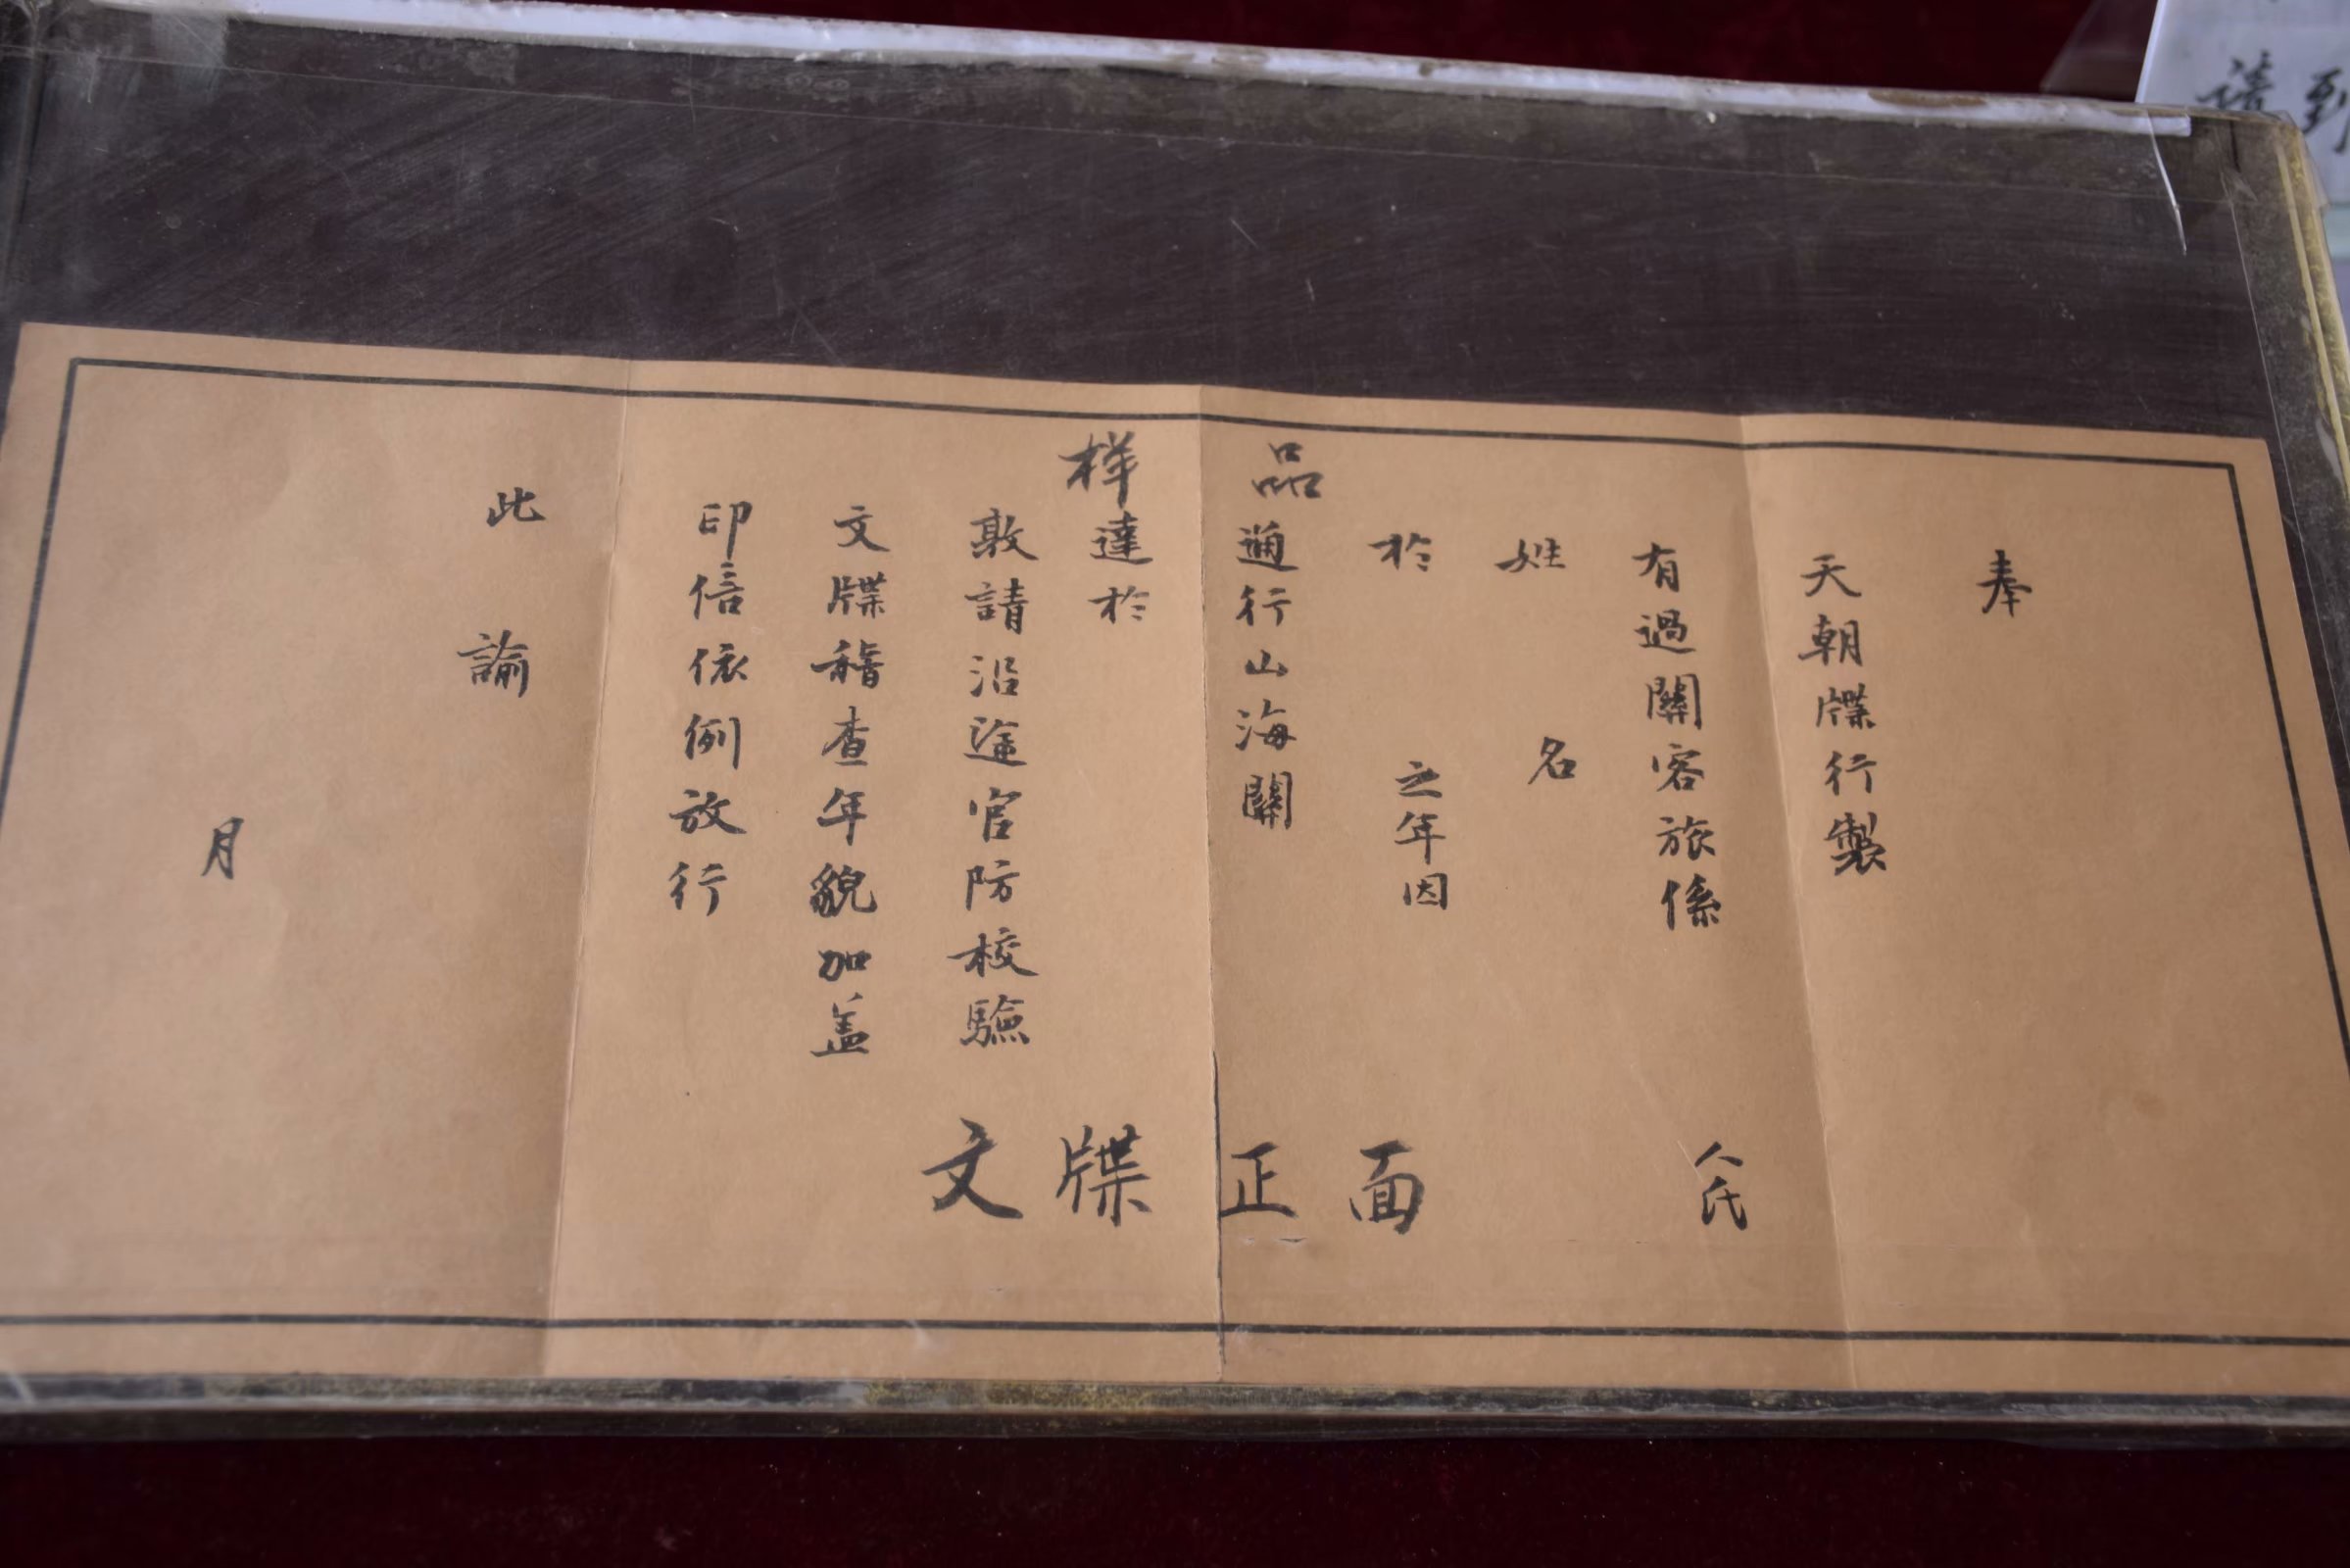 奉
天朝牒行製
有過關客旅係
人氏
姓名
於
之年因
通行山海關
達於
敦請沿途官防校驗
文牒稽查年貌加盖
印信依例放行
此諭
月
样品
文牒正面
请到